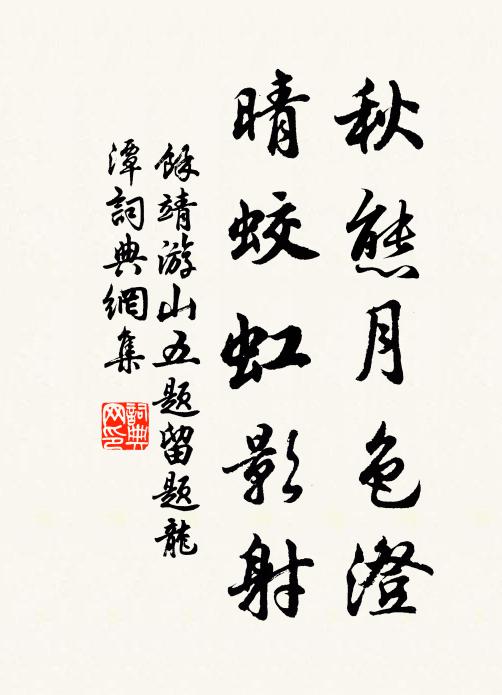 秋熊月色澄
晴蛟虹影射
餘靖游山五题留题龍
潭詞典網集
詞典网印